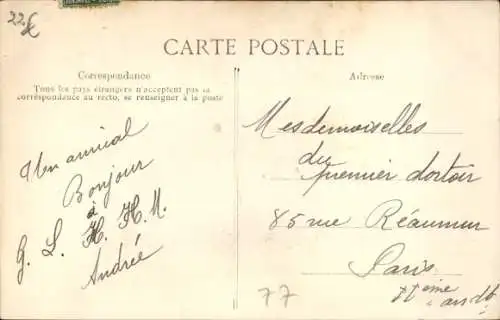 22.£
CARTE POSTALE
Correspondance
Tous les pays étrangers n'acceptent pas la
correspondance au recto, se renseigner à la poste
Un amical
Bonjour
à
G. L. H. H. M.
Andrée
Adresse
Mesdemoiselles
du
premier dortoir
85 rue Réaumur
Paris
II ème
77